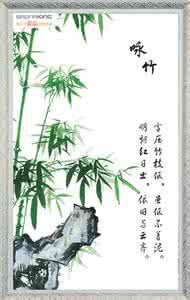 咏竹
雪压竹枝低，虽低不着泥。
明朝红日出，依旧与云齐。